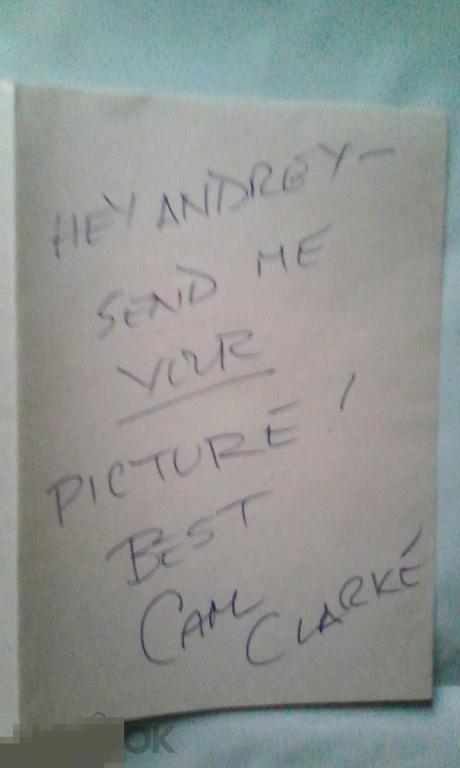 HEY ANDREY –
SEND ME
YOUR
PICTURE!
BEST
CAM CLARKE
OK